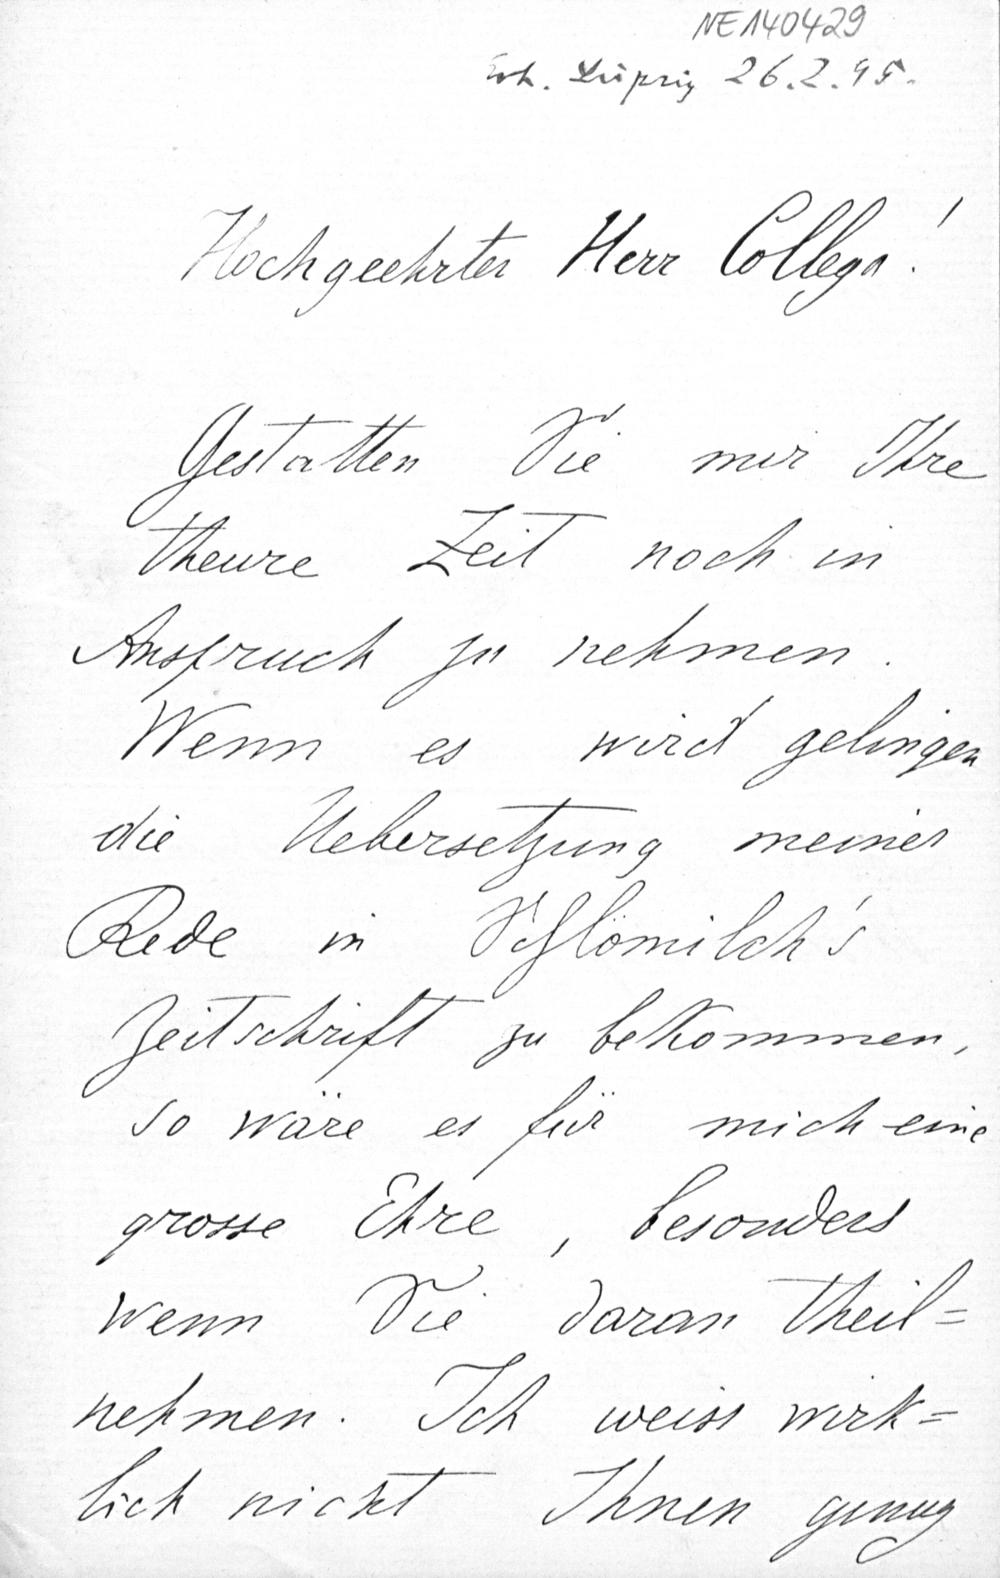 NE140429
Erh. Leipzig 26.2.95.
Hochgeehrter Herr Collega!
Gestatten Sie mir Ihre
theure Zeit noch in
Anspruch zu nehmen.
Wenn es wird gelingen
die Uebersetzung meiner
Rede in Schlömilch's
Zeitschrift zu bekommen,
so wäre es für mich eine
grosse Ehre, besonders
wenn Sie daran theil=
nehmen. Ich weiss wirk=
lich nicht Ihnen genug